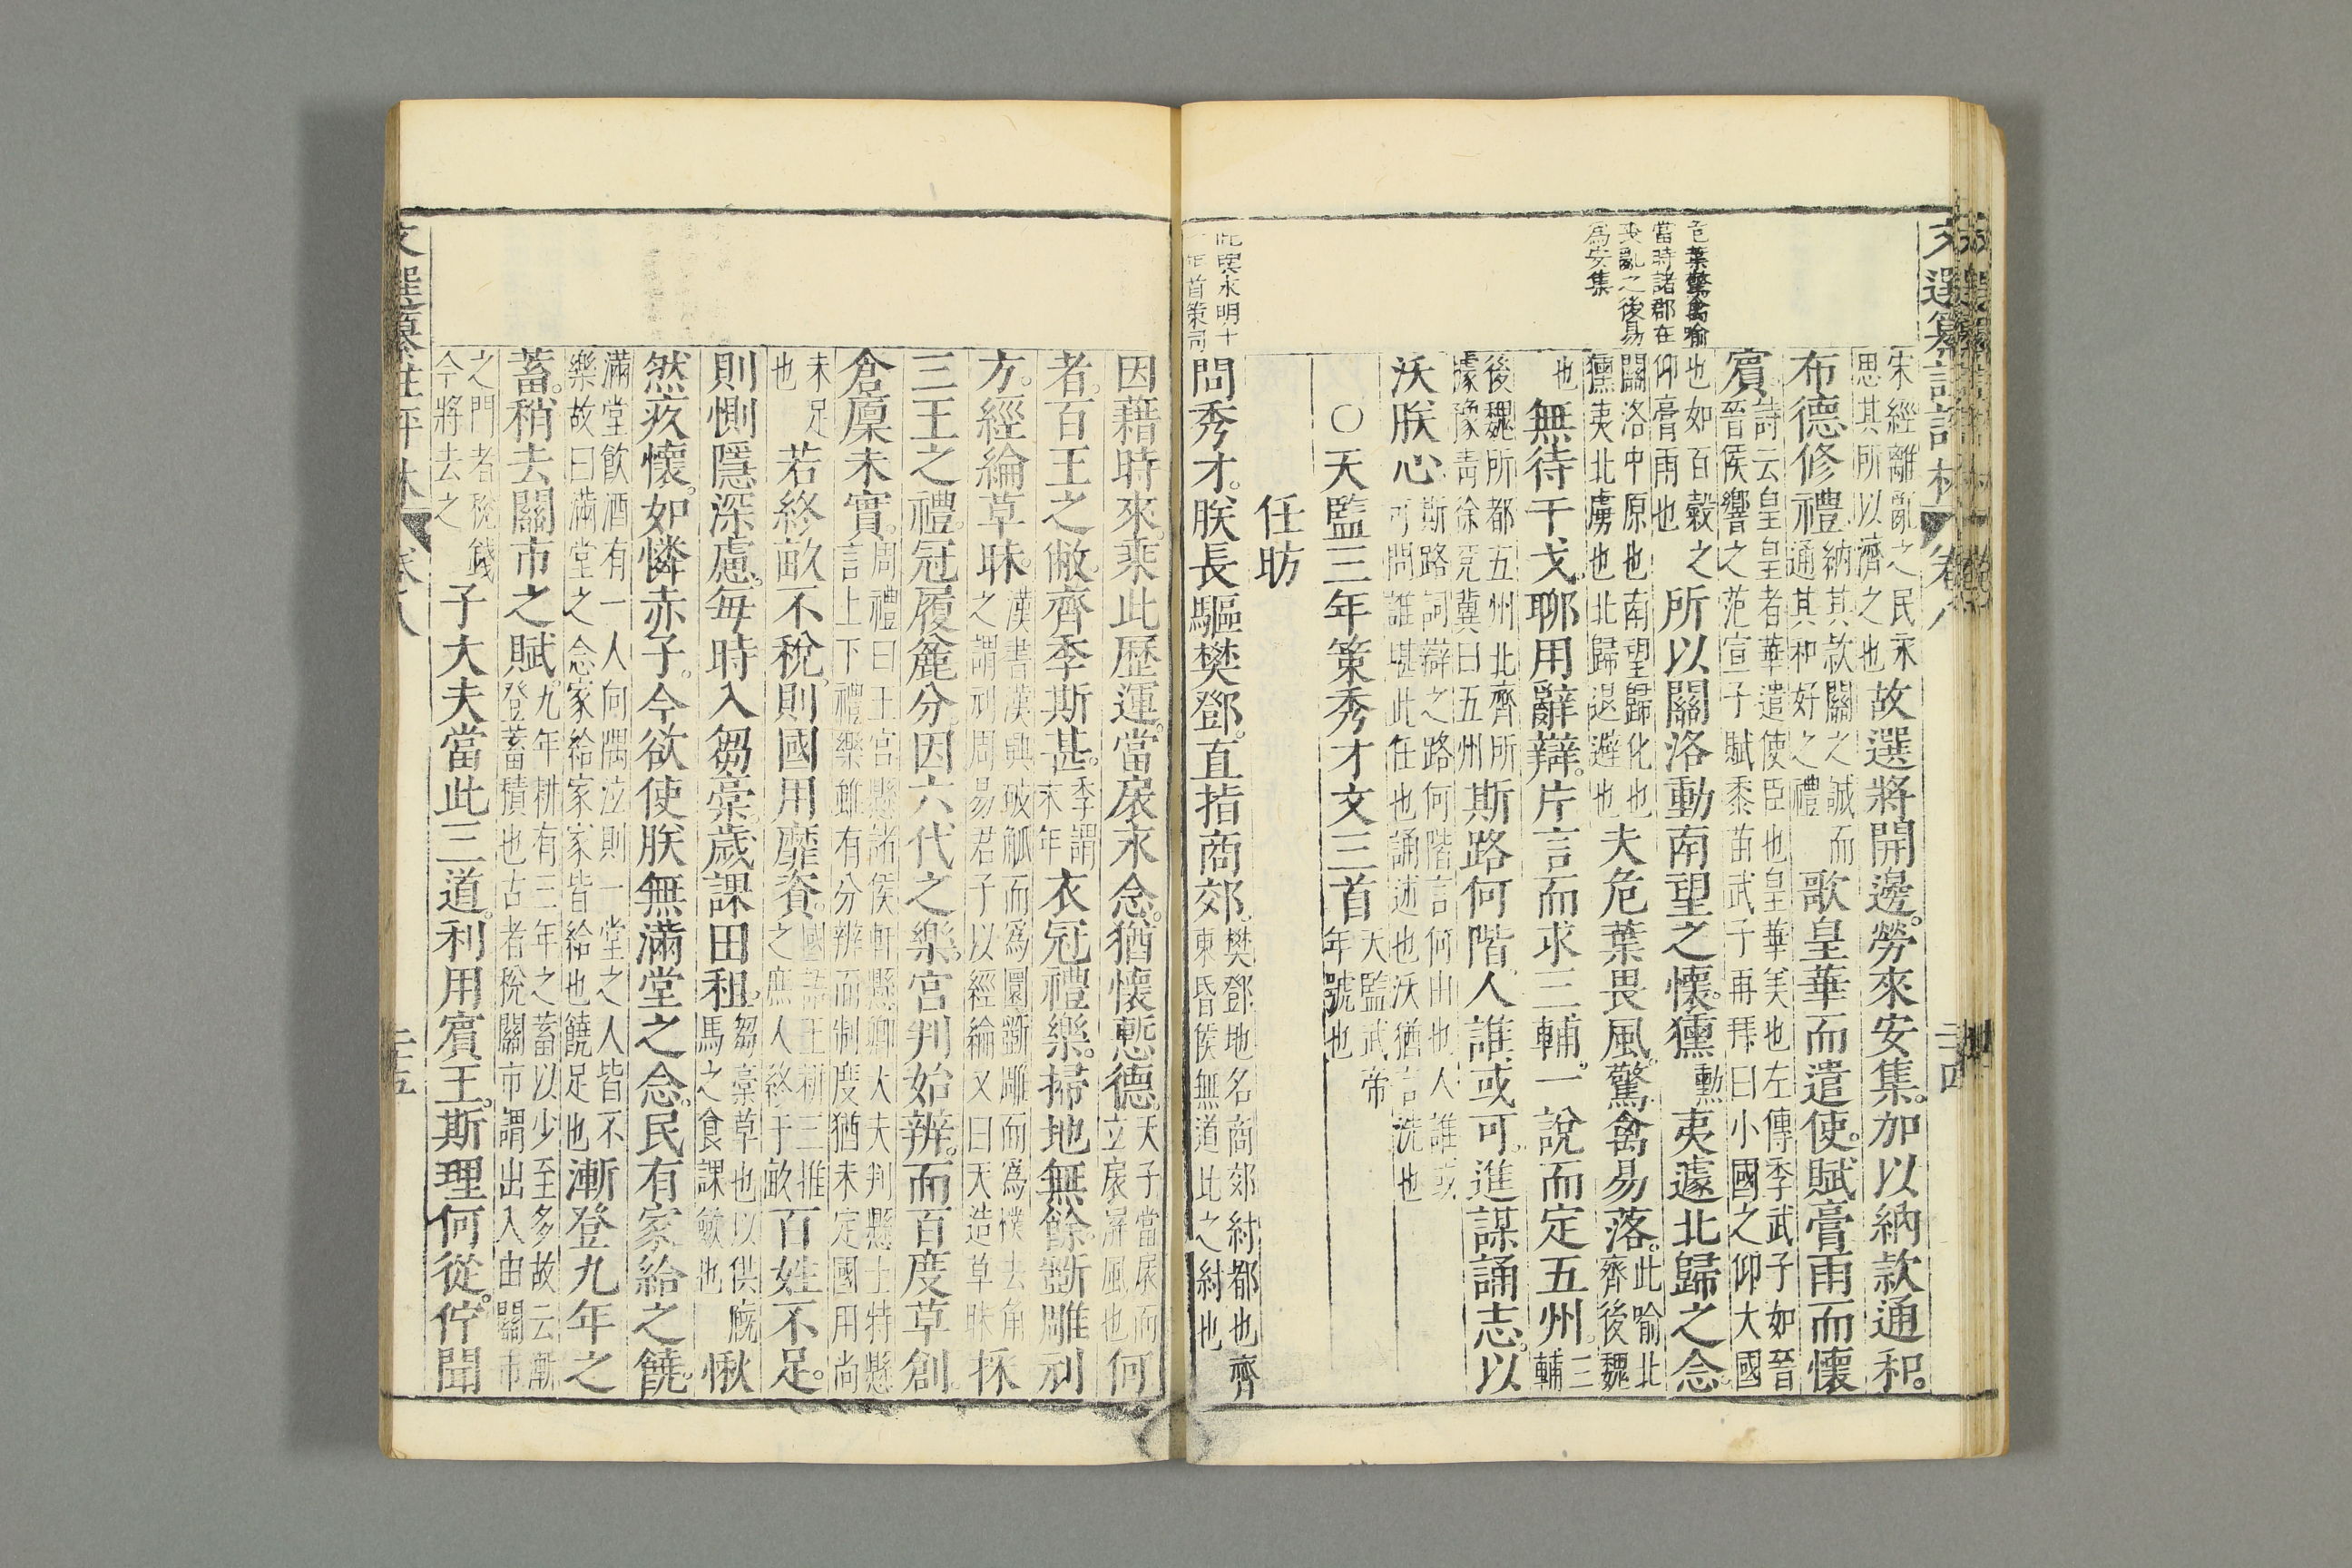 文選纂註評林 卷八 二十四
危葉驚禽喻
當時諸郡在
喪亂之後易
爲安集
宋經離亂之民未
思其所以濟之也
故選將開邊。勞來安集。加以納款通和。
布德修禮。
納其款關之誠而
通其和好之禮
歌皇華而遣使。賦膏雨而懷
賓。
詩云皇皇者華遣使臣也皇華美也左傳季武子如晉
晉侯響之范宣子賦黍苗武子再拜曰小國之仰大國
也如百穀之
仰膏雨也
所以關洛動南望之懷。獯
勲
夷遽北歸之念。
關洛中原也南望歸化也
獯夷北虜也北歸退避也
夫危葉畏風。驚禽易落。
此喻北
齊後魏
也
無待干戈。聊用辭辯。片言而求三輔。一說而定五州。
三
輔
後魏所都五州北齊所
據豫靑徐兗冀曰五州
斯路何階。人誰或可。進謀誦志。以
沃朕心
斯路詞辯之路何階言何由也人誰或
可問誰堪此任也誦述也沃猶言洗也
○天監三年策秀才文三首
天監武帝
年號也
任昉
首策司
問秀才。朕長驅樊鄧。直指商郊。
樊鄧地名商郊紂都也齊
東昏侯無道此之紂也
因藉時來。乘此歷運。當扆永念。猶懷慙德。
天子當扆而
立扆屏風也
何
者。百王之敝。齊季斯甚。
季謂
末年
衣冠禮樂。掃地無餘。斵雕刓
方。經綸草昧。
漢書漢興破觚而爲圜斵雕而爲樸去角
之謂刓周易君子以經綸又曰天造草昧
採
三王之禮。冠履麄分。因六代之樂。宮判始辨。而百度草創。
倉廩未實。
周禮曰王宮懸諸侯軒懸卿大夫判懸士特懸
言上下禮樂雖有分辨而制度猶未定國用尚
未足
也
若終畝不稅。則國用靡資。
國語王耕三推
之庶人終于畝
百姓不足。
則惻隱深慮。每時入芻稾。歲課田租。
芻稾草也以供廐
馬之食課歛也
愀
然疚懷。如憐赤子。今欲使朕無滿堂之念。民有家給之饒。
滿堂飲酒有一人向隅泣則一堂之人皆不
樂故曰滿堂之念家給家家皆給也饒足也
漸登九年之
蓄。稍去關市之賦。
九年耕有三年之蓄以少至多故云漸
登蓄積也古者稅關市謂出入由關市
之門者稅錢
今將去之
子大夫當此三道。利用賓王。斯理何從。佇聞
文選纂註評林 卷八 二十五